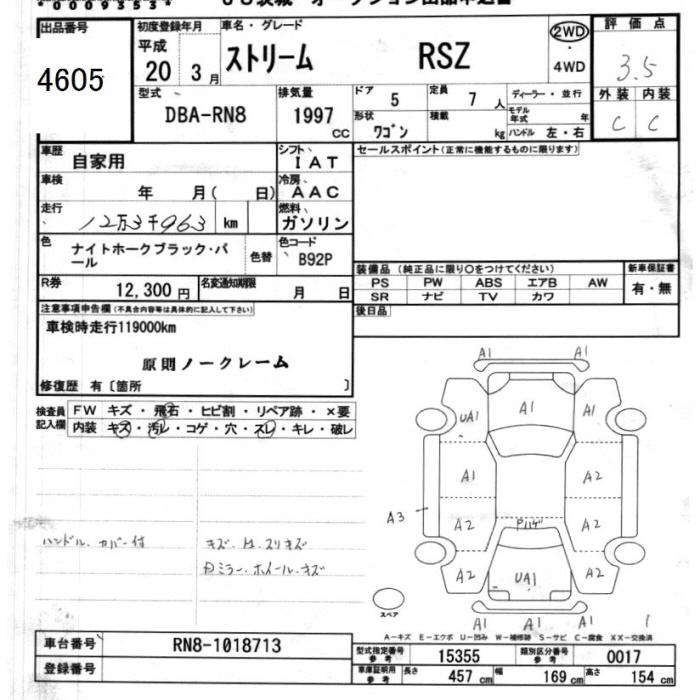 *00093534*
JU茨城 オークション出品申込書
出品番号 4605
初度登録年月 平成 20 3月
車名・グレード ストリーム RSZ
2WD・4WD
評価点 3.5
型式 DBA-RN8
排気量 1997 cc
ドア 5
定員 7人
ディーラー・並行
モデル年式 年
外装 内装
C C
形状 ワゴン
積載 kg
ハンドル 左・右
車歴 自家用
シフト IAT
セールスポイント(正常に機能するものに限ります)
車検 年 月( 日)
冷房 AAC
走行 12万3千963 km
燃料 ガソリン
色 ナイトホークブラック・パール
色替
色コード B92P
装備品(純正品に限り○をつけてください)
新車保証書
PS PW ABS エアB AW
有・無
SR ナビ TV カワ
R券 12,300円
名変通知期限 月 日
後日品
注意事項申告欄(不具合内容等は具体的に記入して下さい)
車検時走行119000km
原則ノークレーム
修復歴 有〔箇所 〕
検査員記入欄
FW キズ・飛石・ヒビ割・リペア跡・×要
内装 キズ・汚レ・コゲ・穴・スレ・キレ・破レ
A1 A1
UA1 A1 A1
A1 A2
A3 A2 Pハゲ A2
A2 UA1 A2
A1 A1 A1
スペア
ハンドル、カバー付
キズ、
Dミラー・ホイール・キズ
A-キズ E-エクボ U-凹み W-補修跡 S-サビ C-腐食 XX-交換済
車台番号 RN8-1018713
型式指定番号 参考 15355
類別区分番号 参考 0017
登録番号
車庫証明用 参考 長さ 457 cm 幅 169 cm 高さ 154 cm